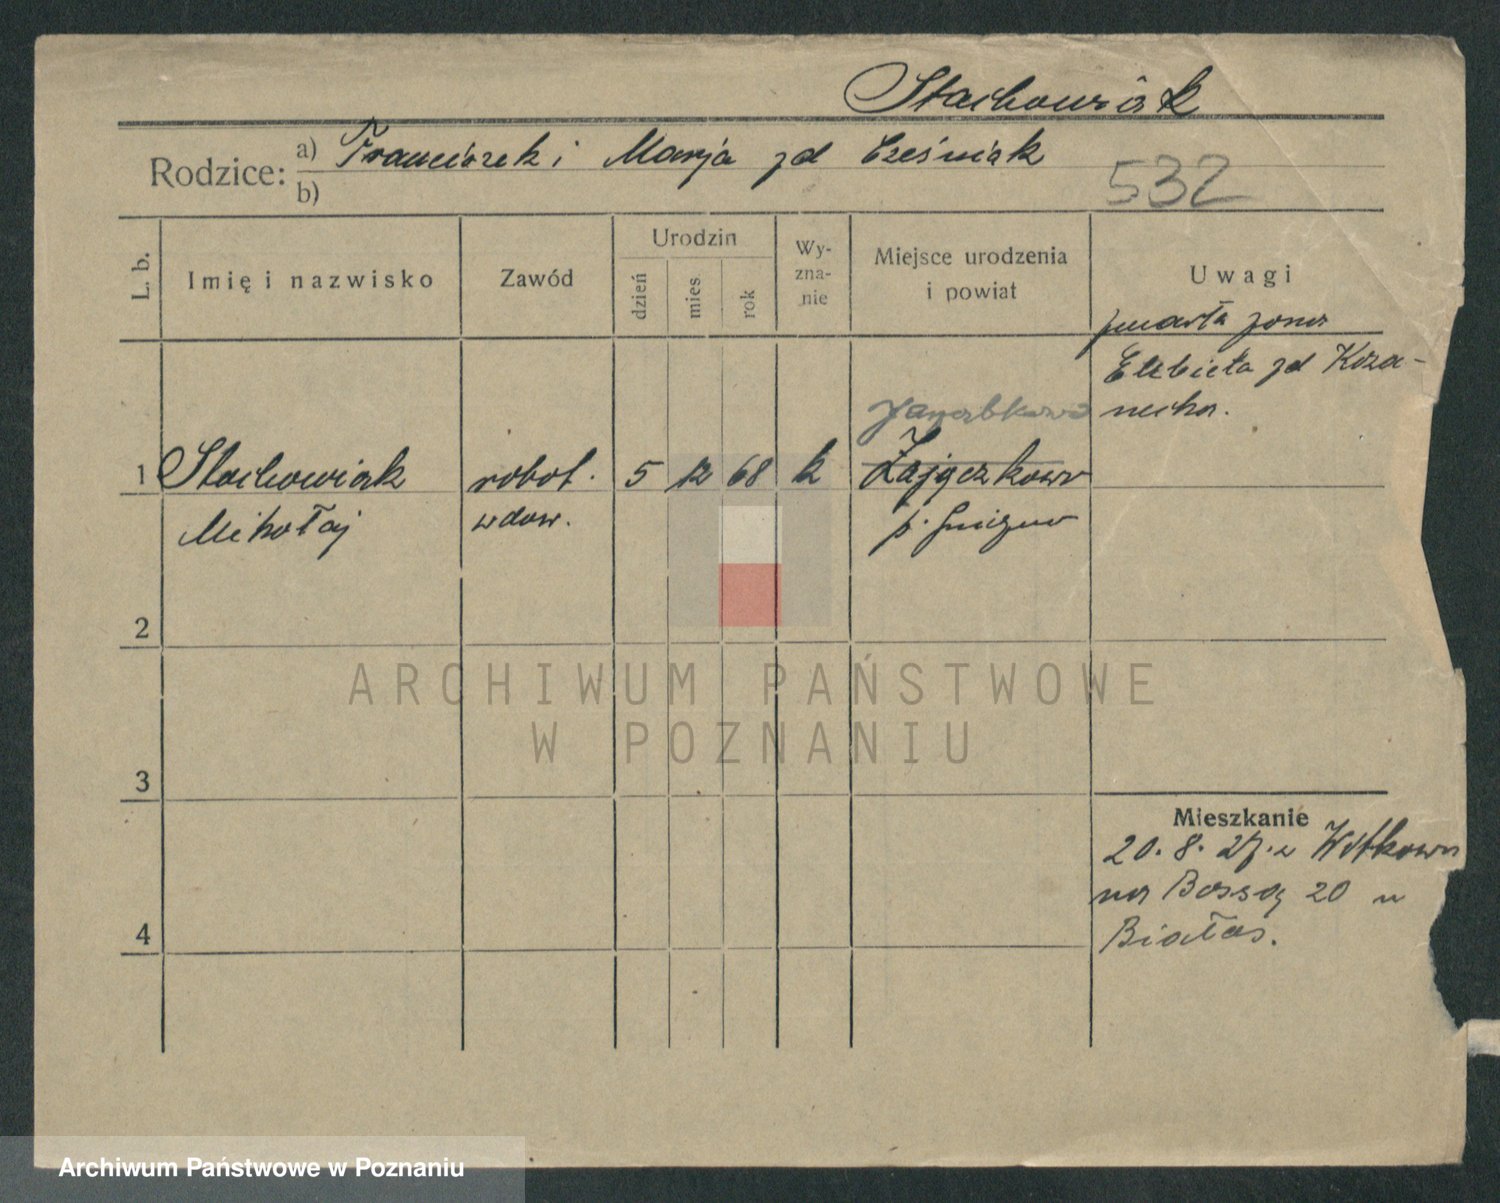 Stachowiak
Rodzice:
a) Franciszek i Marja zd Cześniak
b)
532
L. b.
Imię i nazwisko
Zawód
Urodzin
dzień
mies
rok
Wy-
zna-
nie
Miejsce urodzenia
i powiat
Uwagi
zmarła żona
Elżbieta zd Koza-
necka.
1 Stachowiak robot. 5 12 68 k Zajączkowo
Mikołaj wdow. p. Gniezno
2
3
4
Mieszkanie
20. 8. 27. z Witkowa
na Bossą 20 u
Białas.
ARCHIWUM PAŃSTWOWE
W POZNANIU
Archiwum Państwowe w Poznaniu